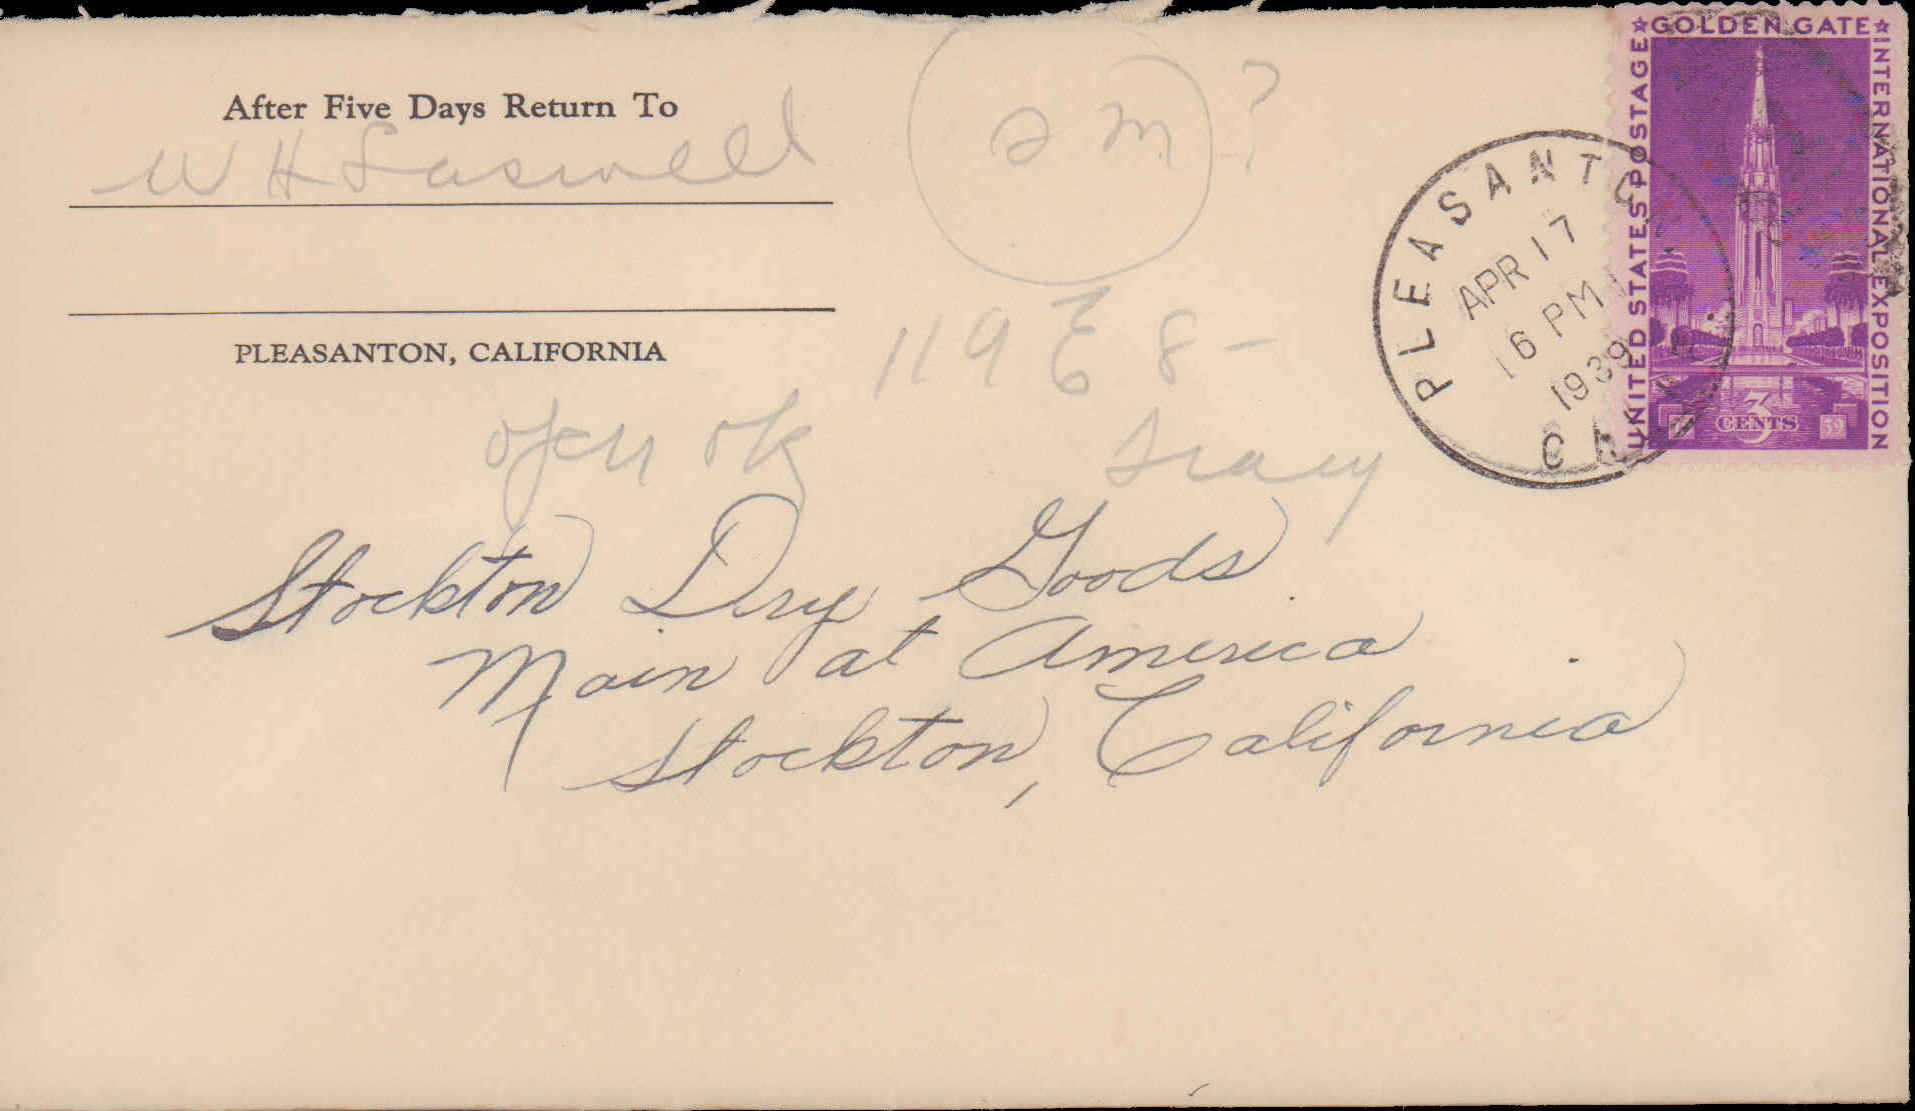 After Five Days Return To
W H Laswell
PLEASANTON, CALIFORNIA
S M ?
119 E 8 -
ok
Tracy
PLEASANTON
APR 17
6 PM
1939
CALIF.
GOLDEN GATE
INTERNATIONAL EXPOSITION
UNITED STATES POSTAGE
3
CENTS
39
Stockton Dry Goods
Main at America
Stockton, California